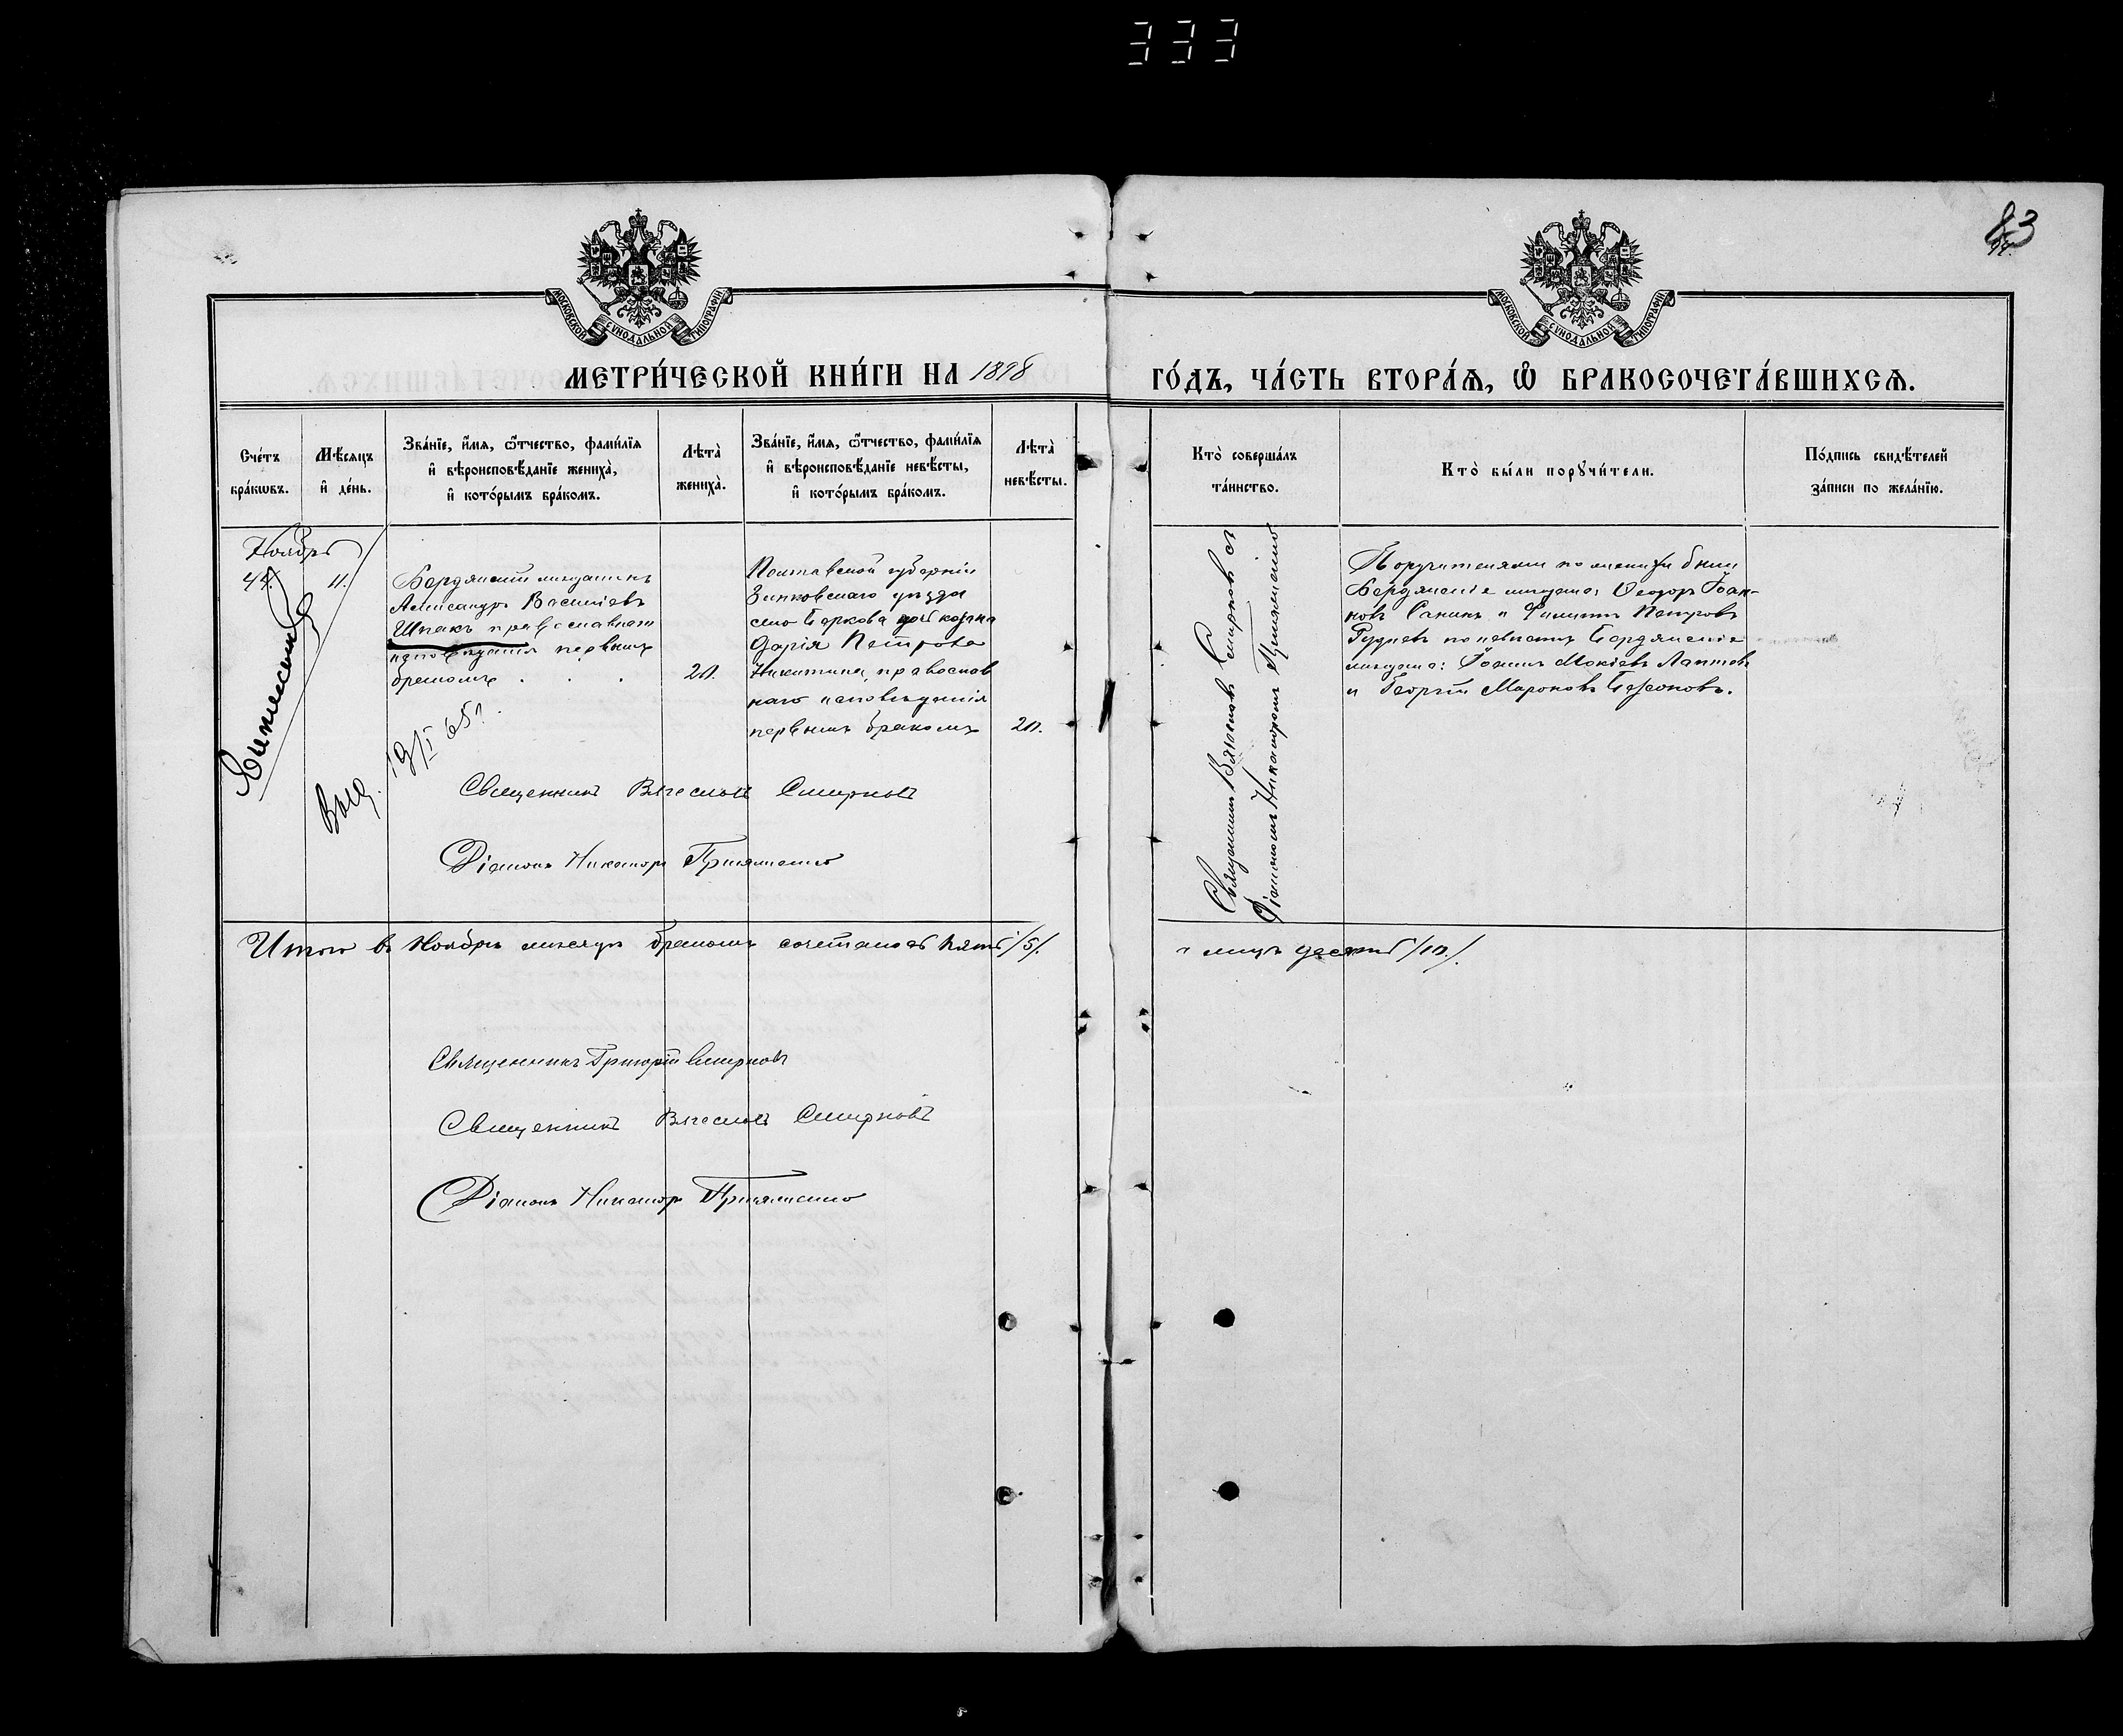 333
83
МОСКОВСКОЙ СУНОДАЛЬНОЙ ТИПОГРАФІИ
МОСКОВСКОЙ СУНОДАЛЬНОЙ ТИПОГРАФІИ
МЕТРИ́ЧЕСКОЙ КНИ́ГИ НА 1898
ГО́ДЪ, ЧА́СТЬ ВТОРА́Ѧ, Ѽ БРАКОСОЧЕТА́ВШИХСѦ.
Сче́тъ бра́кѡвъ.
Мѣ́сяцъ и де́нь.
Зва́нїе, и́мя, ѿтчество, фами́лїя
и вѣроисповѣ́данїе жениха̀,
и кото́рымъ бра́комъ.
Лѣта̀ жениха̀.
Зва́нїе, и́мя, ѿтчество, фами́лїя
и вѣроисповѣ́данїе невѣ́сты,
и кото́рымъ бра́комъ.
Лѣта̀ невѣ́сты.
Кто̀ соверша́лъ
та́инство.
Кто̀ бы́ли порꙋчи́тели.
По́дпись свидѣ́телей
за́писи по жела́нїю.
Ноябрь
44.
11.
Бердянскій мѣщанинъ
Александръ Васильевъ
Шпакъ православнаго
исповѣданія первымъ
бракомъ . . .
20.
Полтавской губерніи
Зиньковскаго уѣзда
дочь козака
Дарія Петрова
Никитина, православ
наго исповѣданія
первымъ бракомъ
20.
Священникъ Вячеславъ Смирновъ съ
Діакономъ Никаноромъ
Поручителями по женихѣ были
Бердянскіе мѣщане: Ѳеодоръ Іоан-
новъ Санинъ и Филиппъ Петровъ
Рудневъ по невѣстѣ Бердянскіе
мѣщане: Іоаннъ Мокіевъ Лаптевъ
и Георгій Мароновъ
Выд. 19/I 65 г.
Священникъ Вячеславъ Смирновъ
Діаконъ Никаноръ
Итого въ Ноябрѣ мѣсяцѣ бракомъ сочеталось пять /5/.
и лицъ десять /10./.
Священникъ Григорій Смирновъ
Священникъ Вячеславъ Смирновъ
Діаконъ Никаноръ